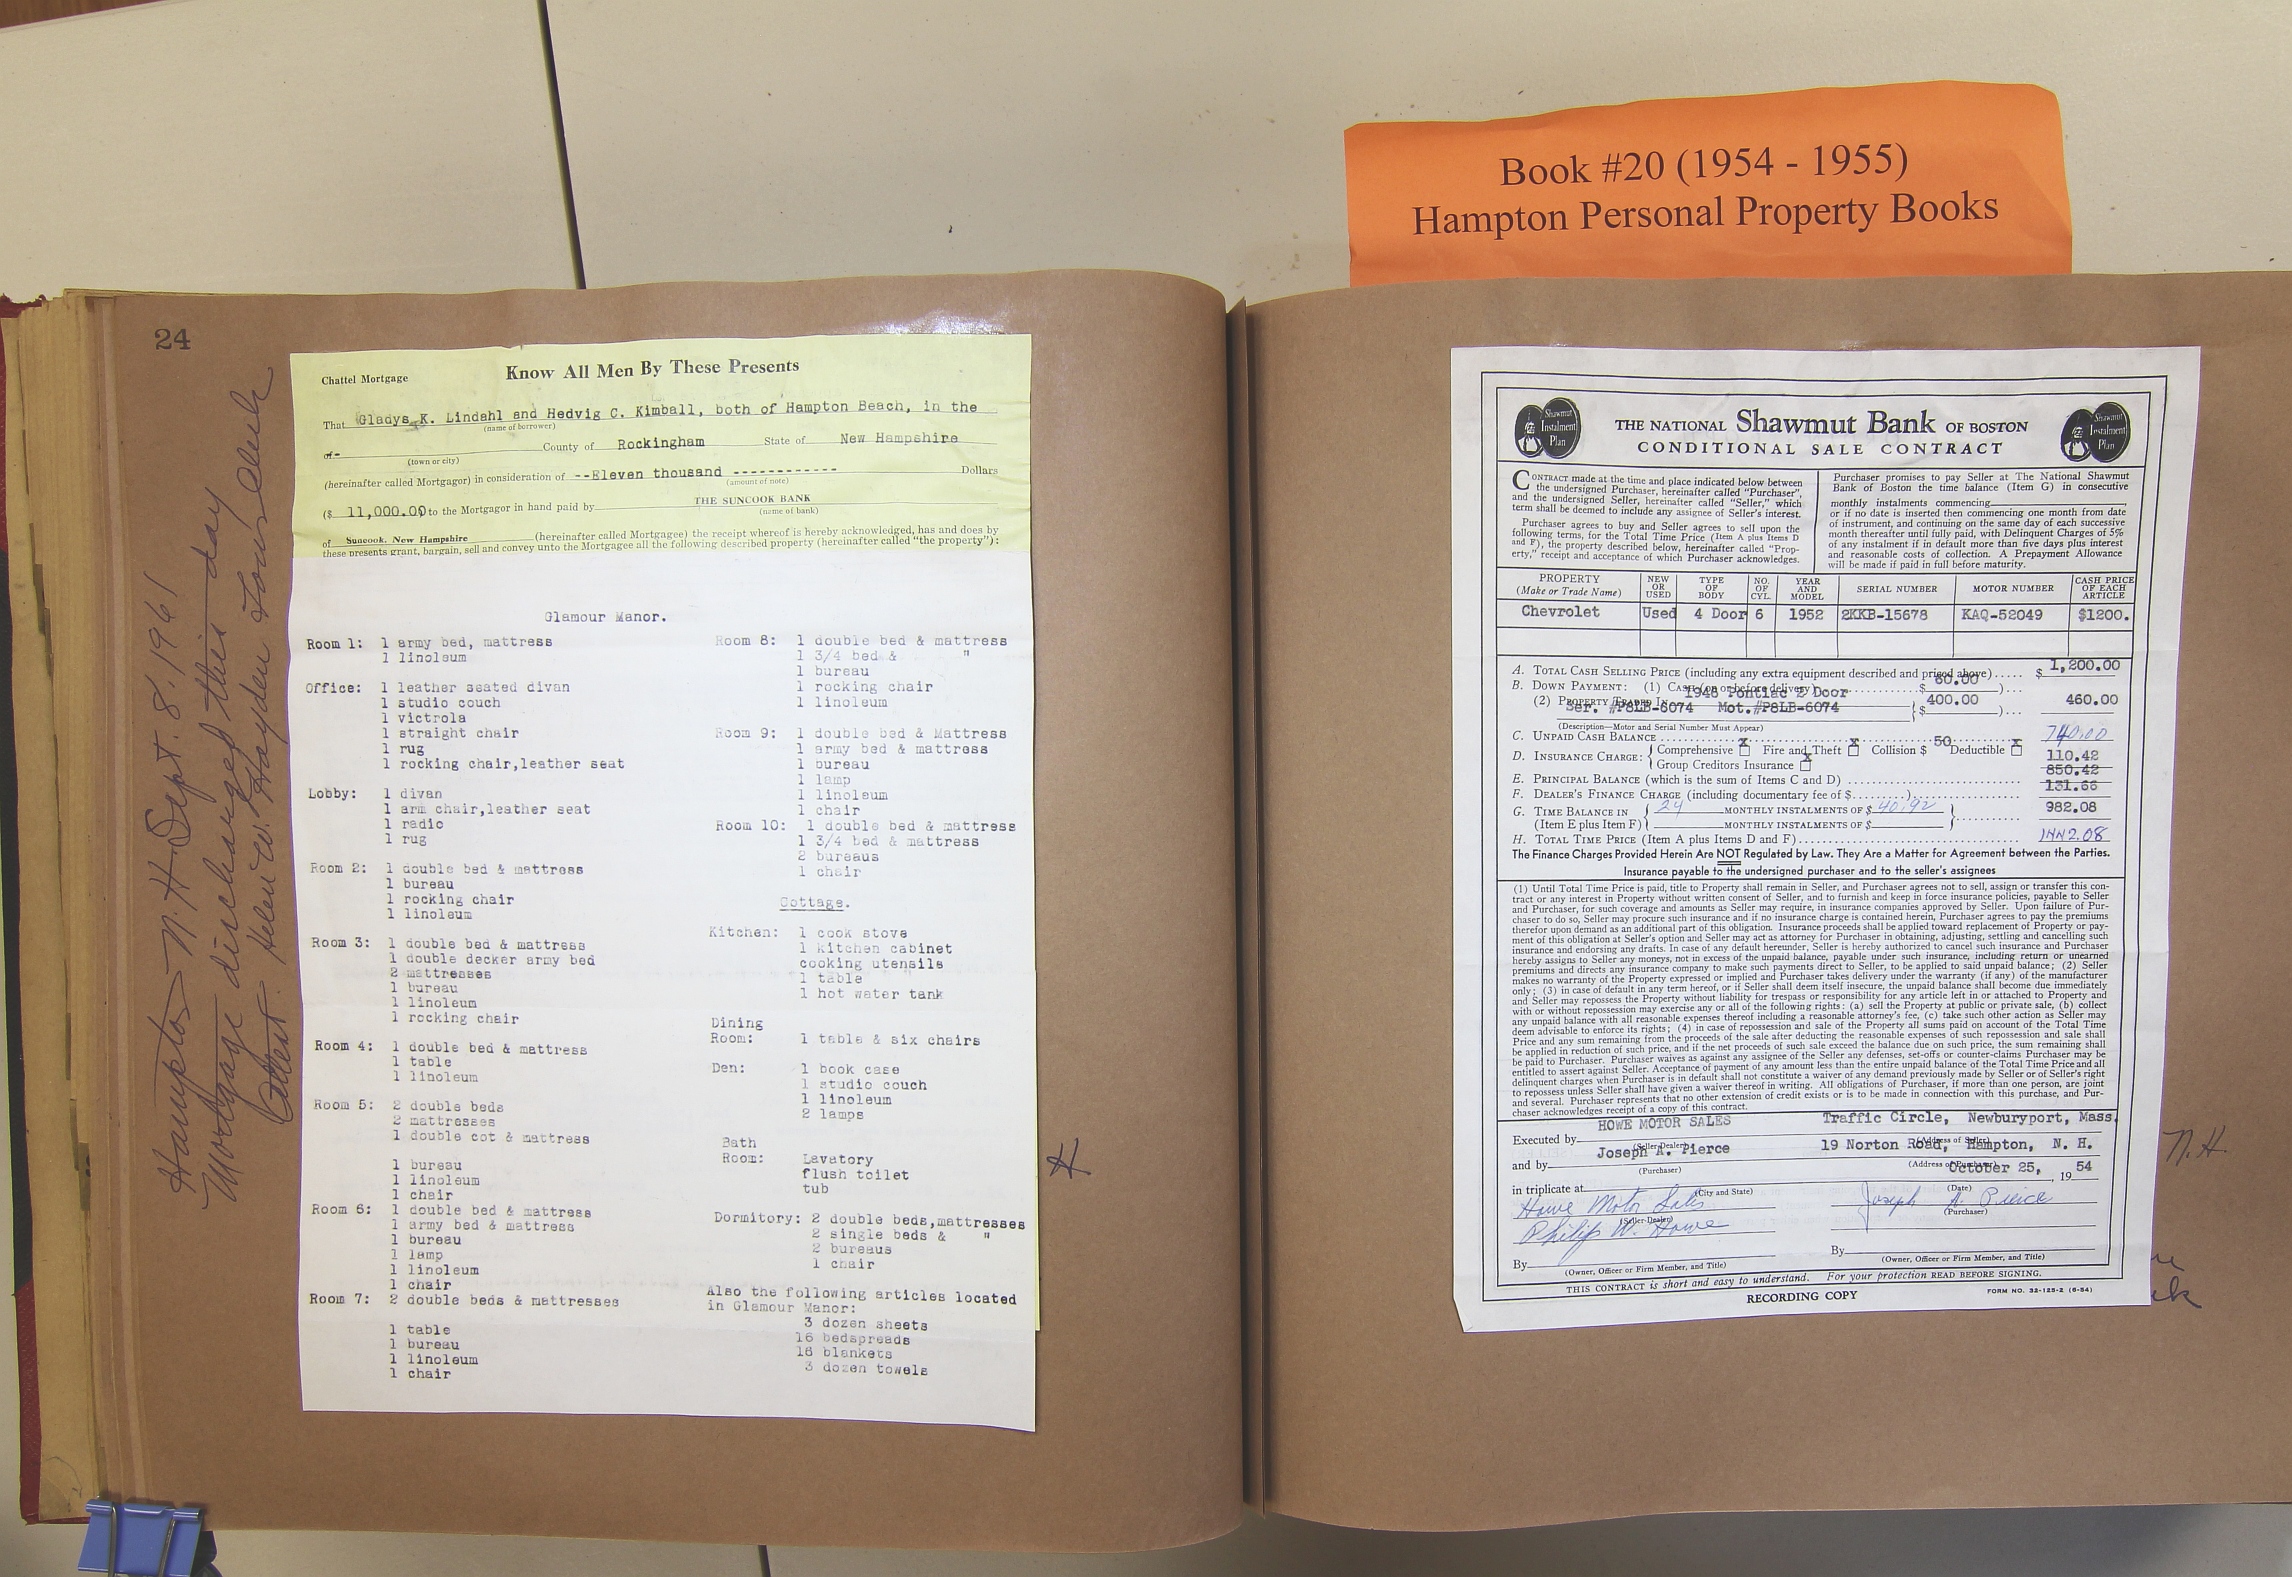 Book #20 (1954 - 1955)
Hampton Personal Property Books
24
Hampton N.H. Sept. 8, 1961
Mortgage discharged this day
Attest: Helen W. Hayden Town Clerk
Chattel Mortgage
Know All Men By These Presents
That Gladys K. Lindahl and Hedvig C. Kimball, both of Hampton Beach, in the
(name of borrower)
of- County of Rockingham State of New Hampshire
(town or city)
(hereinafter called Mortgagor) in consideration of --Eleven thousand ------------ Dollars
(amount of note)
($ 11,000.00) to the Mortgagor in hand paid by THE SUNCOOK BANK
(name of bank)
of Suncook, New Hampshire (hereinafter called Mortgagee) the receipt whereof is hereby acknowledged, has and does by
these presents grant, bargain, sell and convey unto the Mortgagee all the following described property (hereinafter called "the property"):
Glamour Manor.
Room 1: 1 army bed, mattress
1 linoleum
Office: 1 leather seated divan
1 studio couch
1 victrola
1 straight chair
1 rug
1 rocking chair,leather seat
Lobby: 1 divan
1 arm chair,leather seat
1 radio
1 rug
Room 2: 1 double bed & mattress
1 bureau
1 rocking chair
1 linoleum
Room 3: 1 double bed & mattress
1 double decker army bed
2 mattresses
1 bureau
1 linoleum
1 rocking chair
Room 4: 1 double bed & mattress
1 table
1 linoleum
Room 5: 2 double beds
2 mattresses
1 double cot & mattress
1 bureau
1 linoleum
1 chair
Room 6: 1 double bed & mattress
1 army bed & mattress
1 bureau
1 lamp
1 linoleum
1 chair
Room 7: 2 double beds & mattresses
1 table
1 bureau
1 linoleum
1 chair
Room 8: 1 double bed & mattress
1 3/4 bed & "
1 bureau
1 rocking chair
1 linoleum
Room 9: 1 double bed & Mattress
1 army bed & mattress
1 bureau
1 lamp
1 linoleum
1 chair
Room 10: 1 double bed & mattress
1 3/4 bed & mattress
2 bureaus
1 chair
Cottage.
Kitchen: 1 cook stove
1 kitchen cabinet
cooking utensils
1 table
1 hot water tank
Dining
Room: 1 table & six chairs
Den: 1 book case
1 studio couch
1 linoleum
2 lamps
Bath
Room: Lavatory
flush toilet
tub
Dormitory: 2 double beds,mattresses
2 single beds & "
2 bureaus
1 chair
Also the following articles located
in Glamour Manor:
3 dozen sheets
16 bedspreads
18 blankets
3 dozen towels
H
Shawmut Instalment Plan
THE NATIONAL Shawmut Bank OF BOSTON
CONDITIONAL SALE CONTRACT
Shawmut Instalment Plan
CONTRACT made at the time and place indicated below between
the undersigned Purchaser, hereinafter called "Purchaser",
and the undersigned Seller, hereinafter called "Seller," which
term shall be deemed to include any assignee of Seller's interest.
Purchaser agrees to buy and Seller agrees to sell upon the
following terms, for the Total Time Price (Item A plus Items D
and F), the property described below, hereinafter called "Prop-
erty," receipt and acceptance of which Purchaser acknowledges.
Purchaser promises to pay Seller at The National Shawmut
Bank of Boston the time balance (Item G) in consecutive
monthly instalments commencing
or if no date is inserted then commencing one month from date
of instrument, and continuing on the same day of each successive
month thereafter until fully paid, with Delinquent Charges of 5%
of any instalment if in default more than five days plus interest
and reasonable costs of collection. A Prepayment Allowance
will be made if paid in full before maturity.
PROPERTY (Make or Trade Name) NEW OR USED TYPE OF BODY NO. OF CYL. YEAR AND MODEL SERIAL NUMBER MOTOR NUMBER CASH PRICE OF EACH ARTICLE
Chevrolet Used 4 Door 6 1952 2KKB-15678 KAQ-52049 $1200.
A. TOTAL CASH SELLING PRICE (including any extra equipment described and priced above)..... $ 1,200.00
B. DOWN PAYMENT: (1) Cash (on or before delivery) $ 60.00 )...
(2) PROPERTY TRADED IN 1948 Pontiac 2 Door
Ser. #P8LB-6074 Mot.#P8LB-6074 $ 400.00 )... 460.00
(Description—Motor and Serial Number Must Appear)
C. UNPAID CASH BALANCE 740.00
D. INSURANCE CHARGE: Comprehensive x Fire and Theft x Collision $ 50 Deductible x 110.42
Group Creditors Insurance x
E. PRINCIPAL BALANCE (which is the sum of Items C and D) 850.42
F. DEALER'S FINANCE CHARGE (including documentary fee of $........) 131.66
G. TIME BALANCE IN 24 MONTHLY INSTALMENTS OF $ 40.92 982.08
(Item E plus Item F) MONTHLY INSTALMENTS OF $
H. TOTAL TIME PRICE (Item A plus Items D and F) 1442.08
The Finance Charges Provided Herein Are NOT Regulated by Law. They Are a Matter for Agreement between the Parties.
Insurance payable to the undersigned purchaser and to the seller's assignees
(1) Until Total Time Price is paid, title to Property shall remain in Seller, and Purchaser agrees not to sell, assign or transfer this con-
tract or any interest in Property without written consent of Seller, and to furnish and keep in force insurance policies, payable to Seller
and Purchaser, for such coverage and amounts as Seller may require, in insurance companies approved by Seller. Upon failure of Pur-
chaser to do so, Seller may procure such insurance and if no insurance charge is contained herein, Purchaser agrees to pay the premiums
therefor upon demand as an additional part of this obligation. Insurance proceeds shall be applied toward replacement of Property or pay-
ment of this obligation at Seller's option and Seller may act as attorney for Purchaser in obtaining, adjusting, settling and cancelling such
insurance and endorsing any drafts. In case of any default hereunder, Seller is hereby authorized to cancel such insurance and Purchaser
hereby assigns to Seller any moneys, not in excess of the unpaid balance, payable under such insurance, including return or unearned
premiums and directs any insurance company to make such payments direct to Seller, to be applied to said unpaid balance; (2) Seller
makes no warranty of the Property expressed or implied and Purchaser takes delivery under the warranty (if any) of the manufacturer
only; (3) in case of default in any term hereof, or if Seller shall deem itself insecure, the unpaid balance shall become due immediately
and Seller may repossess the Property without liability for trespass or responsibility for any article left in or attached to Property and
with or without repossession may exercise any or all of the following rights: (a) sell the Property at public or private sale, (b) collect
any unpaid balance with all reasonable expenses thereof including a reasonable attorney's fee, (c) take such other action as Seller may
deem advisable to enforce its rights; (4) in case of repossession and sale of the Property all sums paid on account of the Total Time
Price and any sum remaining from the proceeds of the sale after deducting the reasonable expenses of such repossession and sale shall
be applied in reduction of such price, and if the net proceeds of such sale exceed the balance due on such price, the sum remaining shall
be paid to Purchaser. Purchaser waives as against any assignee of the Seller any defenses, set-offs or counter-claims Purchaser may be
entitled to assert against Seller. Acceptance of payment of any amount less than the entire unpaid balance of the Total Time Price and all
delinquent charges when Purchaser is in default shall not constitute a waiver of any demand previously made by Seller or of Seller's right
to repossess unless Seller shall have given a waiver thereof in writing. All obligations of Purchaser, if more than one person, are joint
and several. Purchaser represents that no other extension of credit exists or is to be made in connection with this purchase, and Pur-
chaser acknowledges receipt of a copy of this contract.
Executed by HOWE MOTOR SALES Traffic Circle, Newburyport, Mass.
(Seller-Dealer) (Address of Seller)
and by Joseph A. Pierce 19 Norton Road, Hampton, N. H.
(Purchaser) (Address of Purchaser)
in triplicate at October 25, , 19 54
(City and State) (Date)
Howe Motor Sales Joseph A. Pierce
(Seller-Dealer) (Purchaser)
Philip W. Howe
By By
(Owner, Officer or Firm Member, and Title) (Owner, Officer or Firm Member, and Title)
THIS CONTRACT is short and easy to understand. For your protection READ BEFORE SIGNING.
RECORDING COPY FORM NO. 32-125-2 (5-54)
N.H.